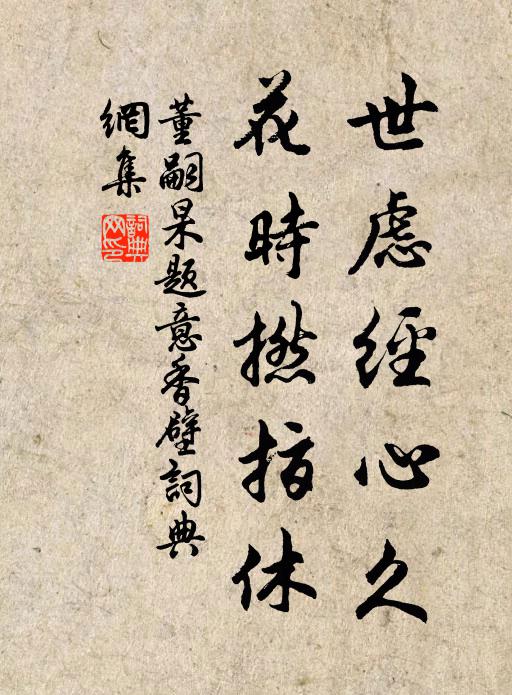 世慮經心久
花時撚指休
董嗣杲題意香壁詞典
網集
詞典網印